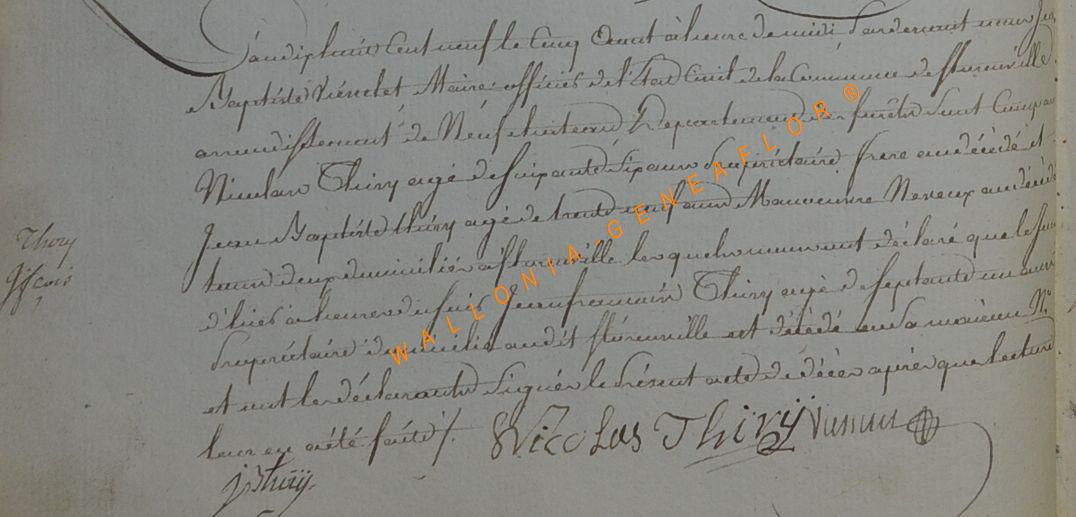 L'an dix huit cent neuf le cinq Aout à l'heure de midi Pardevant nous Jn
Baptiste Maire officier de l'Etat Civil de la Commune de florenville
arrondissement de Neufchateau Département des forêts sont Comparu
Nicolas Thiry agé de soixante six ans Propriétaire frere au décédé et
Jean Baptiste thiry agé de trente neuf ans Manoeuvre Neveux au décédé
tous deux domiciliés à florenville lesquels nous ont déclaré que le jour
d'hier à heures du soir Jean françois Thiry agé de septante un ans
Propriétaire domicilié audit florenville est décédé en sa maison N.º
et ont les déclarants Signés le Présent acte de décès après que lecture
leur en a été faite /.
Nicolas Thirÿ
JBthirÿ.
Thiry
Jn fçois
WALLONIA-GENEAFLOR ®